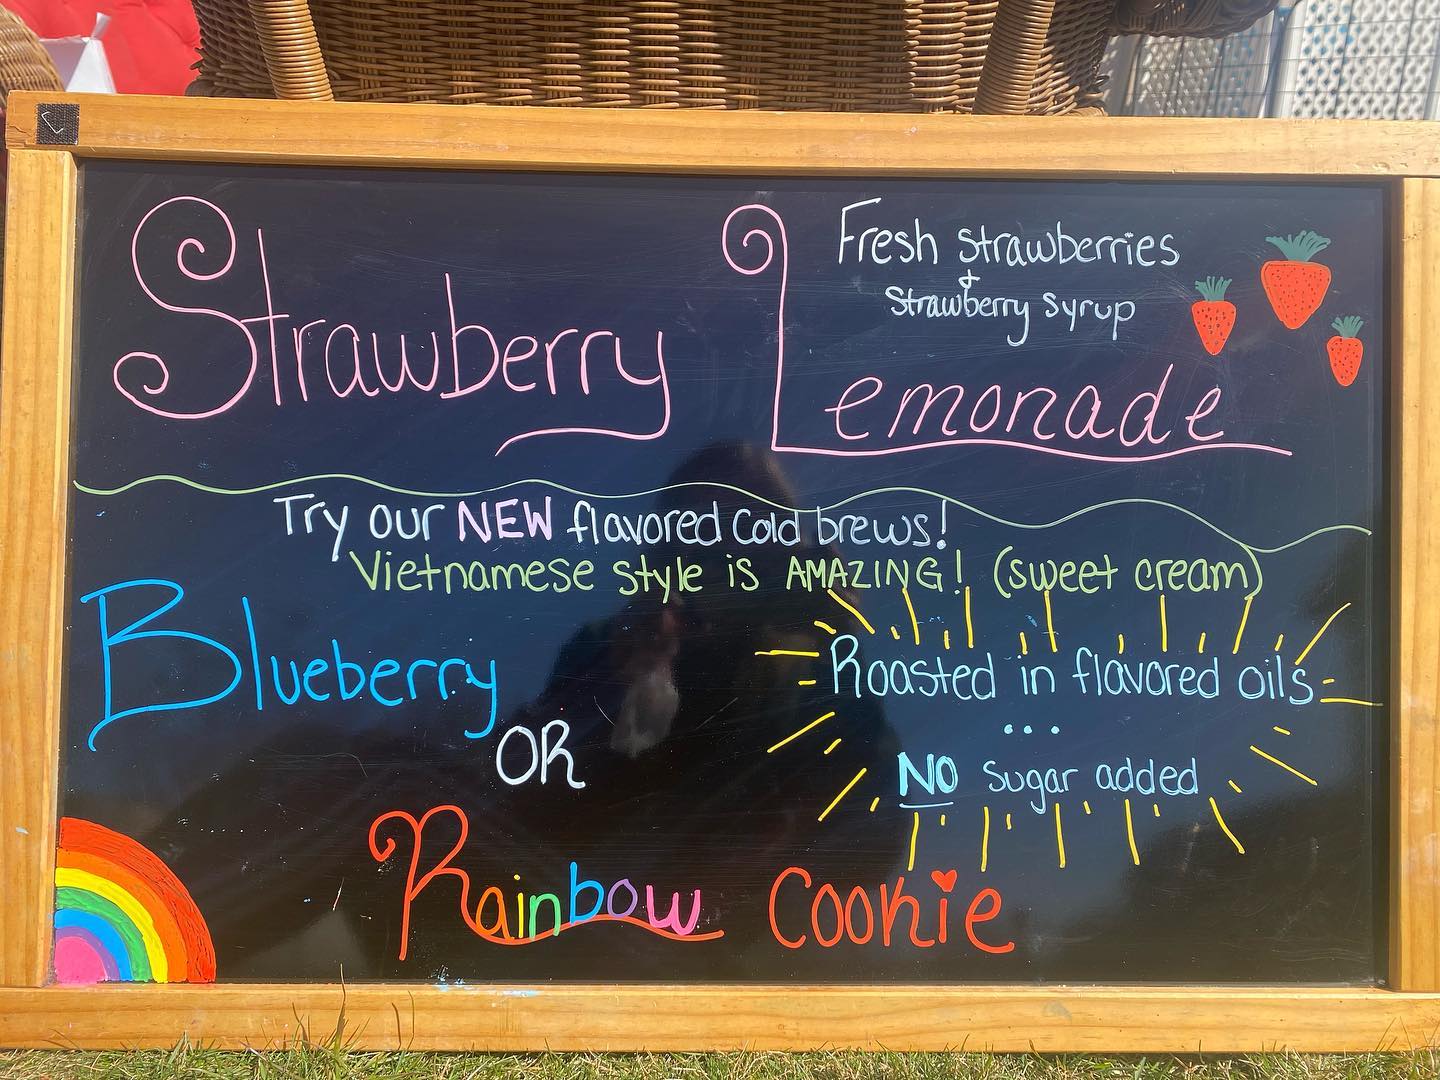 Strawberry Lemonade
Fresh strawberries
+
strawberry syrup
Try our NEW flavored cold brews!
Vietnamese style is AMAZING! (sweet cream)
Blueberry
OR
Rainbow Cookie
Roasted in flavored oils
...
NO sugar added